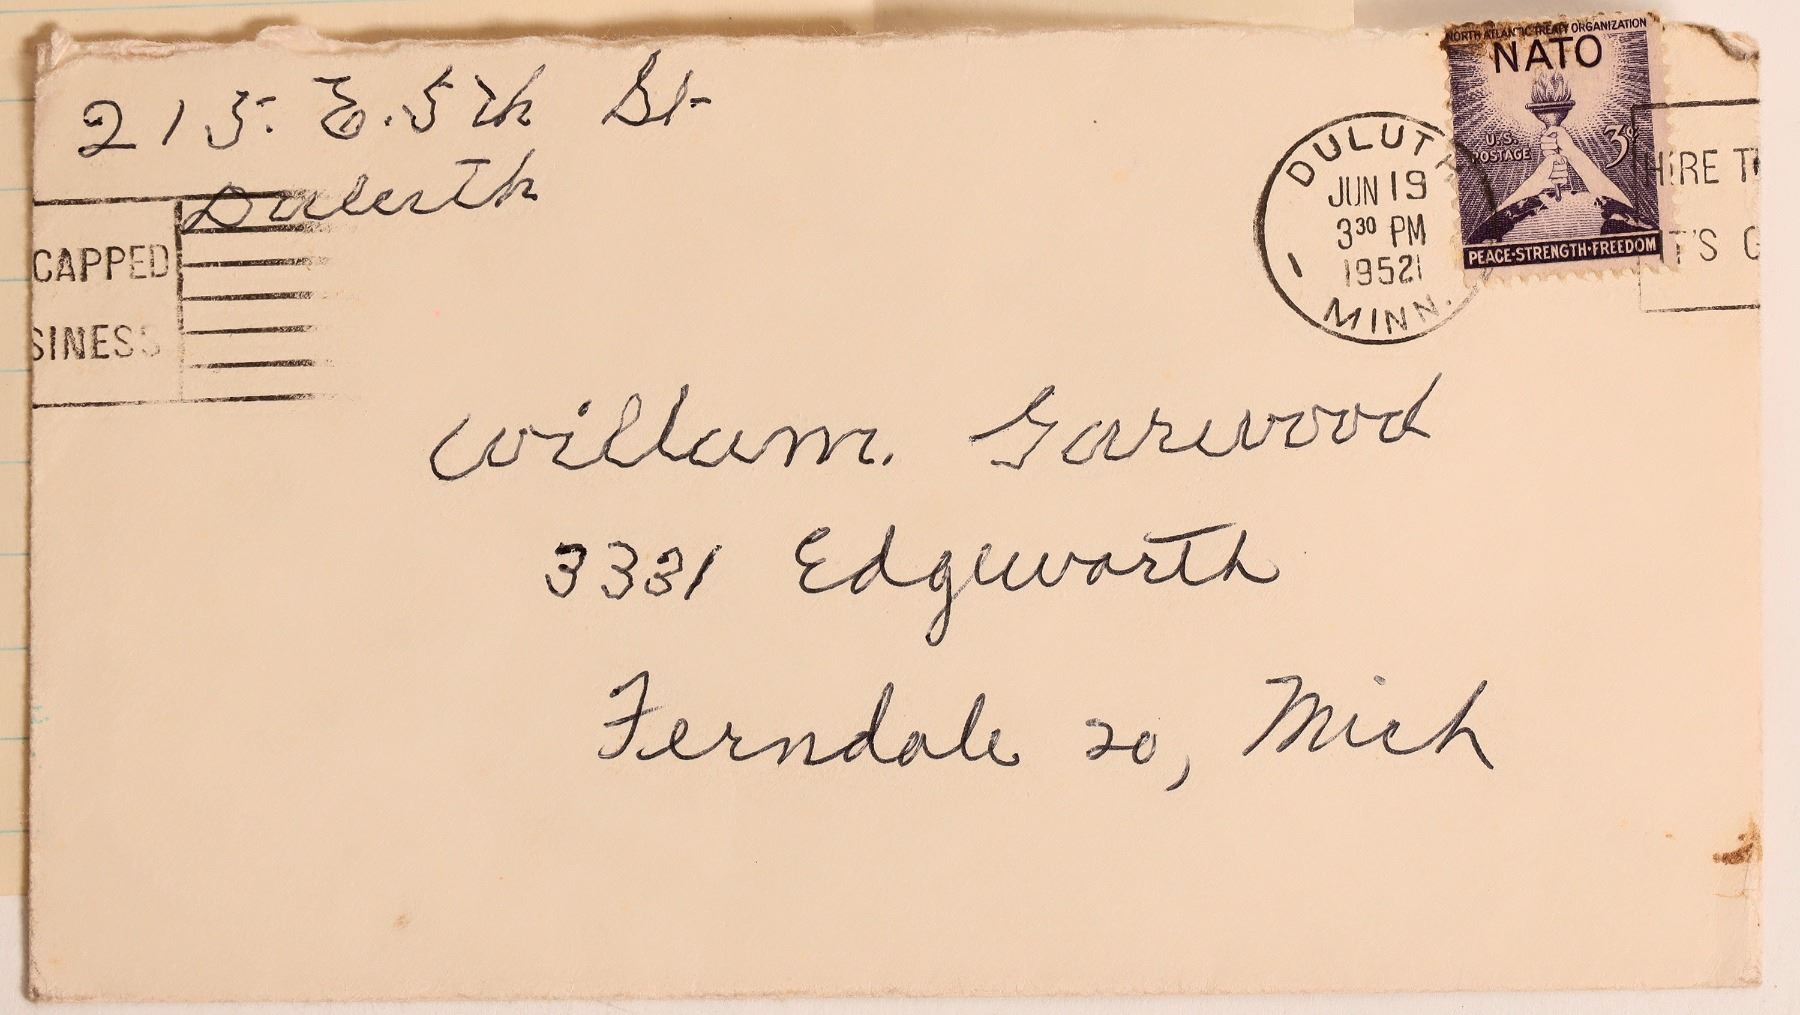 215. E. 5th St
Duluth
CAPPED
SINESS
NORTH ATLANTIC TREATY ORGANIZATION
NATO
U.S. POSTAGE
3¢
PEACE·STRENGTH·FREEDOM
DULUTH
JUN 19
3 30 PM
1952
MINN.
1
HIRE T
IT'S G
Willam. Garwood
3331 Edgeworth
Ferndale 20, Mich